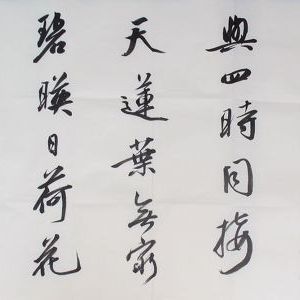 與四時同接
天蓮葉無窮
碧暎日荷花